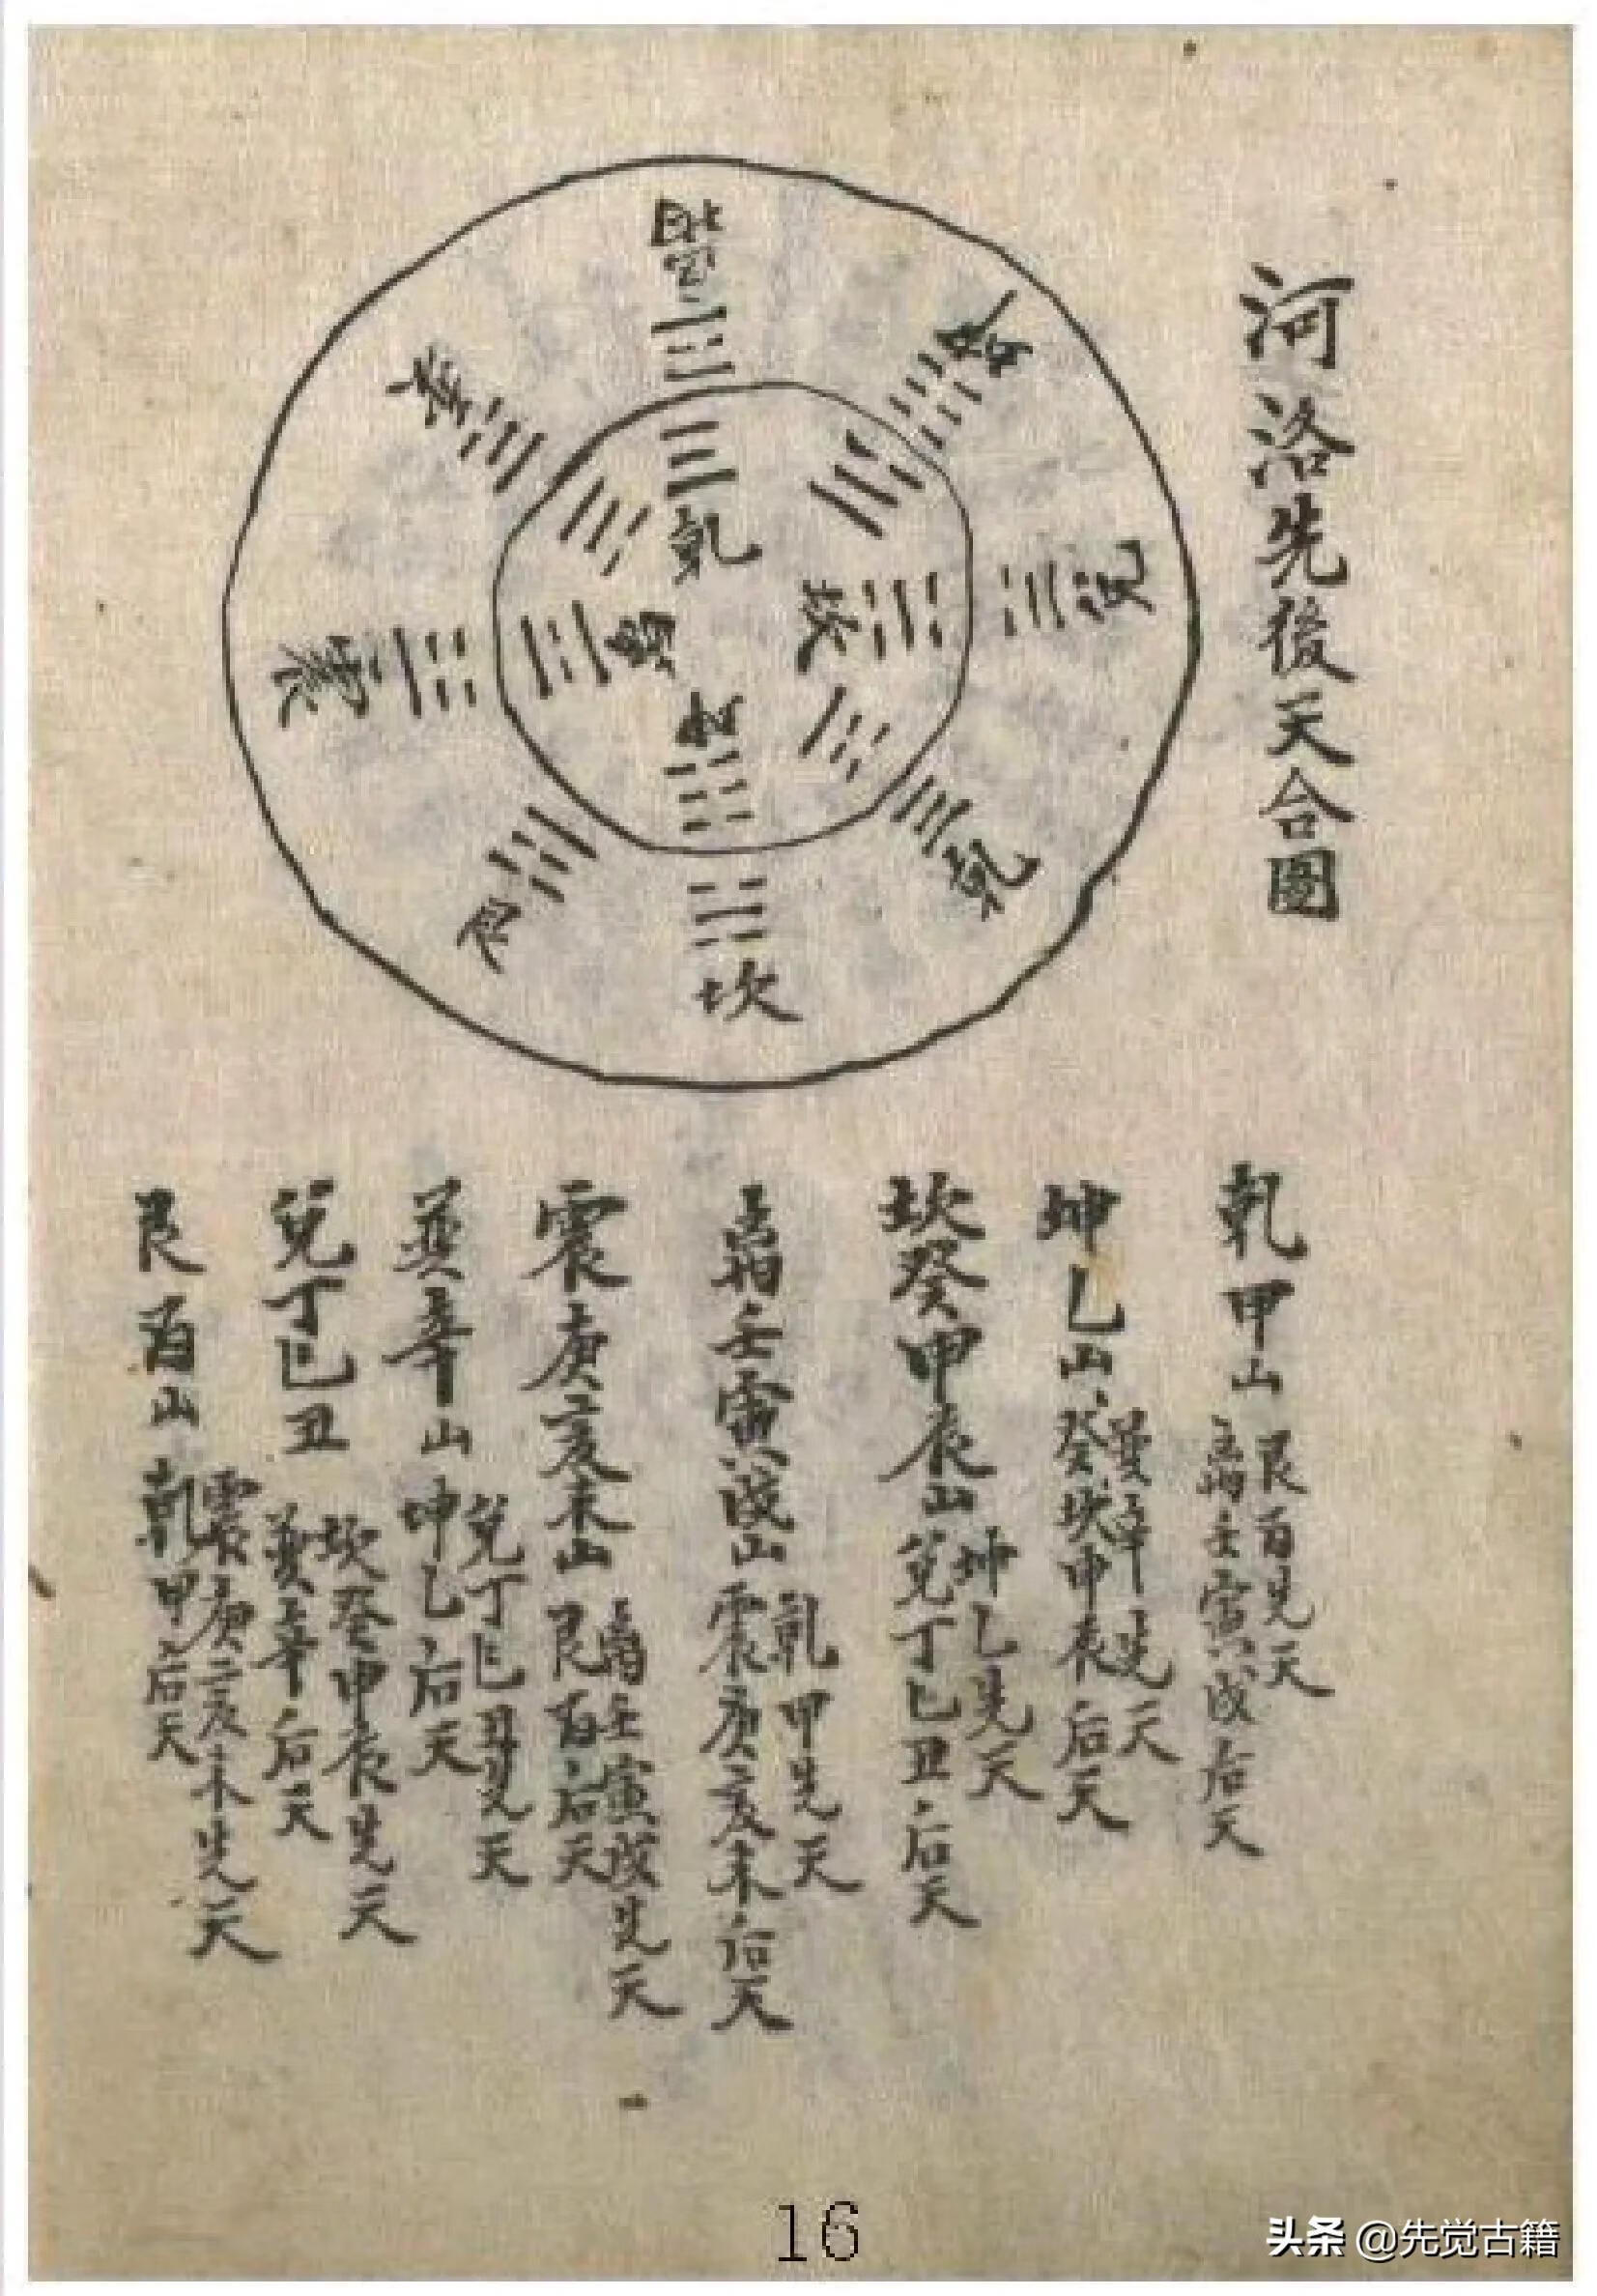 河洛先後天合圖
離
坤
兌
乾
坎
艮
震
巽
乾
坎
坤
離
乾甲山
艮丙先天
離壬寅戌后天
坤乙山
巽辛先天
癸坎申辰后天
坎癸申辰山
坤乙先天
兌丁巳丑后天
離壬寅戌山
乾甲先天
震庚亥未后天
震庚亥未山
離壬寅戌先天
艮丙后天
巽辛山
兌丁巳丑先天
坤乙后天
兌丁巳丑
坎癸申辰先天
巽辛后天
艮丙山
震庚亥未先天
乾甲后天
16
头条 @先觉古籍